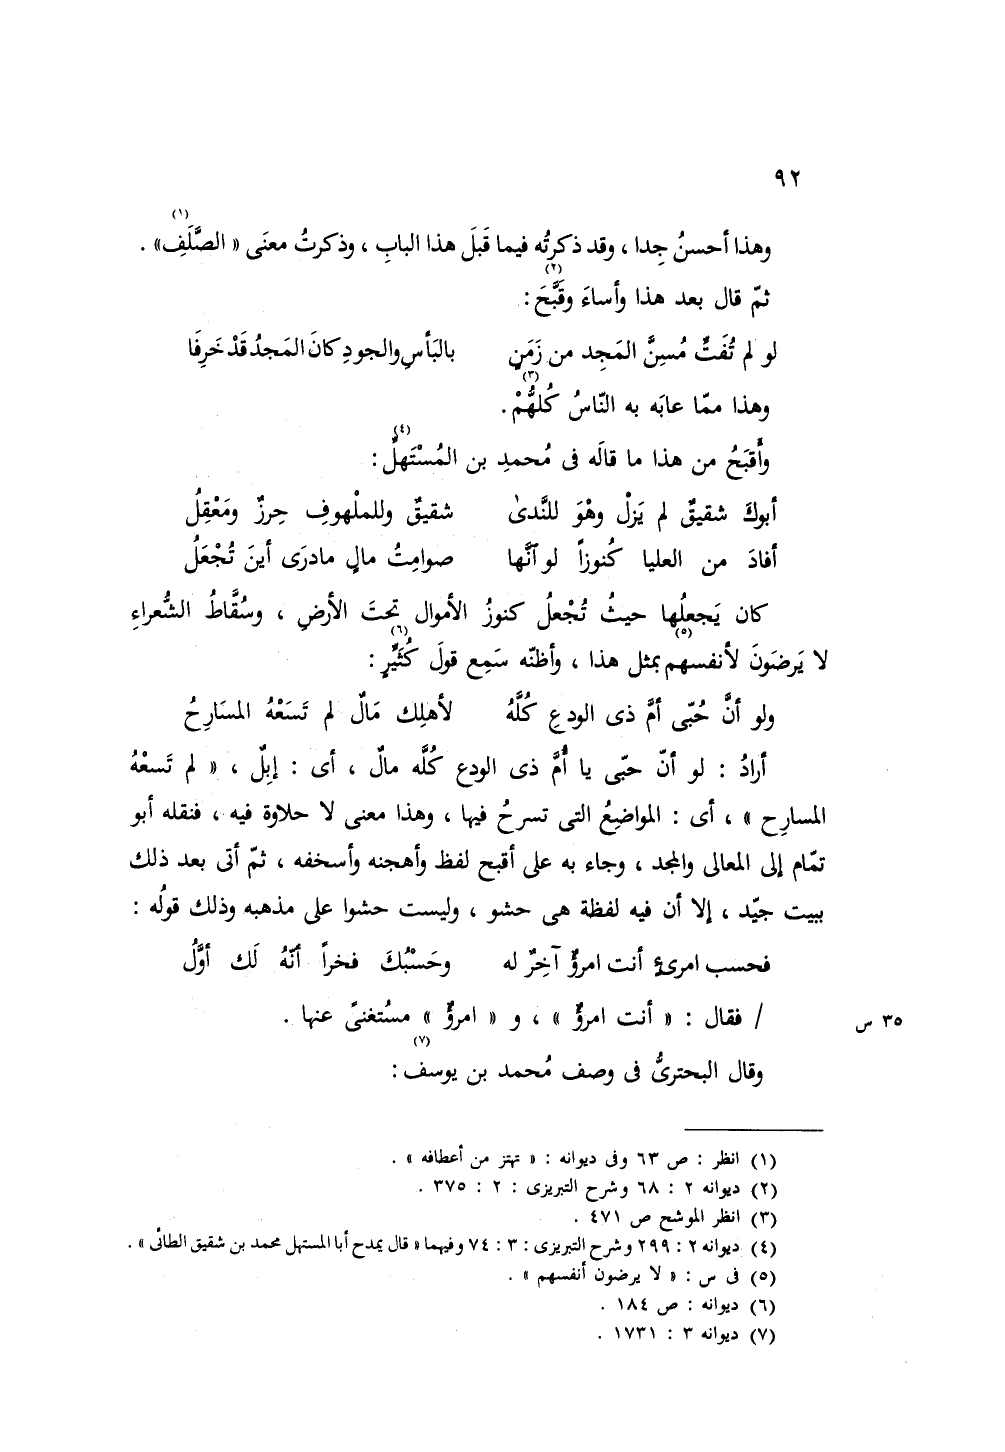 ٩٢
(١)
وهذا أحسنُ جِدا ، وقد ذكرتُه فيما قَبلَ هذا البابِ ، وذكرتُ معنَى « الصَّلَفِ» .
(٢)
ثمّ قال بعد هذا وأساءَ وقَبَّحَ :
لو لم تُفَتِّ مُسِنَّ المَجِد من زَمَنٍ بالبَأسِ والجودِ كانَ المَجدُ قَدْ خَرِفَا
(٣)
وهذا ممّا عابَه به النّاسُ كُلهُّمْ .
(٤)
وأَقبَحُ من هذا ما قالَه فى مُحمدِ بن المُسْتَهلِّ :
أبوكَ شقيقٌ لم يَزلْ وهْوَ للنَّدىٰ شقيقٌ وللملْهوفِ حِرزٌ ومَعْقِلُ
أفادَ من العليا كُنوزاً لو ٱنَّها صوامِتُ مالٍ مادرَى أينَ تُجْعَلُ
كان يَجعلُها حيثُ تُجْعلُ كنوزُ الأموال تحتَ الأرضِ ، وسُقَّاطُ الشُّعراءِ
(٥) (٦)
لا يَرضَونَ لأنفسهم بمثل هذا ، وأظنّه سَمِع قولَ كُثَيِّرٍ :
ولو أنَّ حُبّى أمَّ ذى الودعِ كُلَّهُ لأهلِك مَالٌ لم تَسَعْهُ المسَارِحُ
أرادُ : لو أنّ حبّى يا أُمَّ ذى الودع كُلَّه مالٌ ، أى : إبِلٌ ، « لم تَسعْهُ
المسارِح » ، أى : المواضِعُ التى تسرحُ فيها ، وهذا معنى لا حلاوة فيه ، فنقله أبو
تمّام إلى المعالى والمجد ، وجاء به على أقبح لفظ وأهجنه وأسخفه ، ثمّ أتى بعد ذلك
ببيت جيّد ، إلا أن فيه لفظة هى حشو ، وليست حشوا على مذهبه وذلك قولُه :
فحسب امرئٍ أنت امرؤٌ آخِرٌ له وحَسْبُكَ فخراً أنّهُ لَك أوَّلُ
/ فقال : « أنت امرؤٌ » ، و « امرؤٌ » مستُغنىً عنها . ٣٥ س
(٧)
وقال البحترىُّ فى وصف مُحمد بن يوسف :
(١) انظر : ص ٦٣ وفى ديوانه : « تهتز من أعطافه » .
(٢) ديوانه ٢ : ٦٨ وشرح التبريزى : ٢ : ٣٧٥ .
(٣) انظر الموشح ص ٤٧١ .
(٤) ديوانه ٢ : ٢٩٩ وشرح التبريزى : ٣ : ٧٤ وفيهما « قال يمدح أبا المستهل محمد بن شقيق الطائى » .
(٥) فى س : « لا يرضون أنفسهم » .
(٦) ديوانه : ص ١٨٤ .
(٧) ديوانه ٣ : ١٧٣١ .